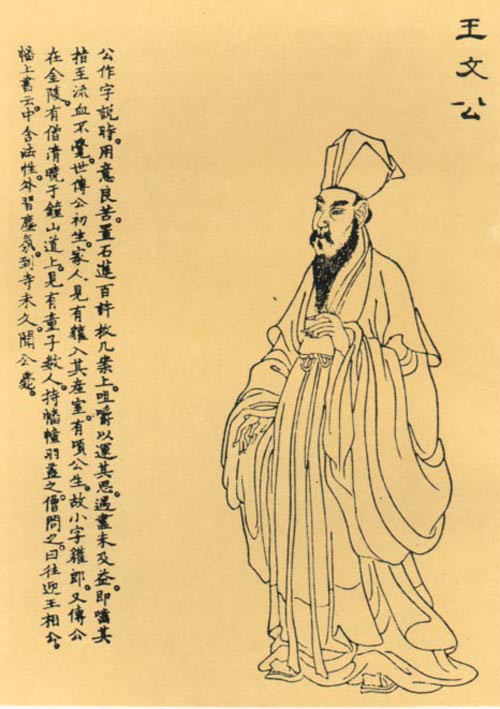 王文公
公作字說時。用意良苦。置石蓮百許枚几案上。咀嚼以運其思。遇盡未及益。即嚙其
指至流血不覺。世傳公初生。家人見有獾入其產室。有頃公生。故小字獾郎。又傳公
在金陵。有僧清曉于鐘山道上。見有童子數人。持幡幢羽蓋之。僧問之。曰往迎王相公。
幡上書云。中含法性。外習塵氛。到寺未久聞公薨。